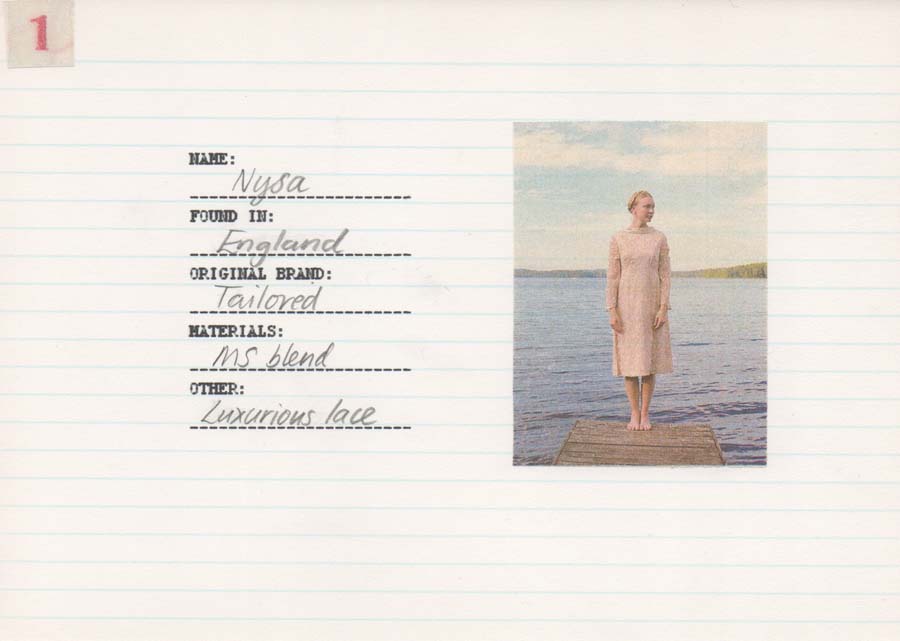 1
NAME:
Nysa
FOUND IN:
England
ORIGINAL BRAND:
Tailored
MATERIALS:
MS blend
OTHER:
Luxurious lace